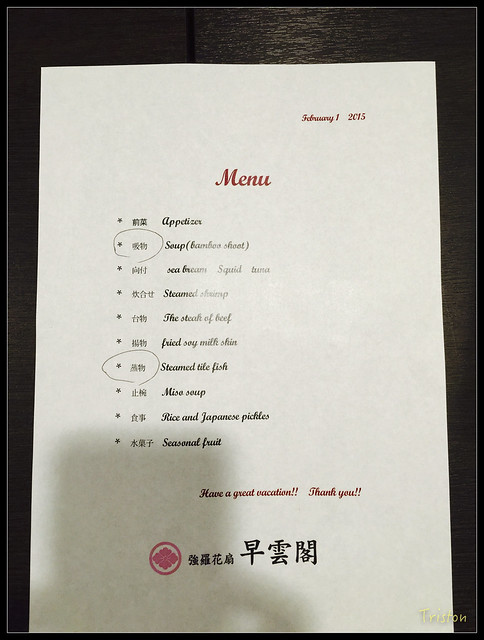 February 1 2015
Menu
* 前菜 Appetizer
* 吸物 Soup(bamboo shoot)
* 向付 sea bream Squid tuna
* 炊合せ Steamed shrimp
* 台物 The steak of beef
* 揚物 fried soy milk skin
* 蒸物 Steamed tile fish
* 止椀 Miso soup
* 食事 Rice and Japanese pickles
* 水菓子 Seasonal fruit
Have a great vacation!! Thank you!!
強羅花扇 早雲閣
Triston